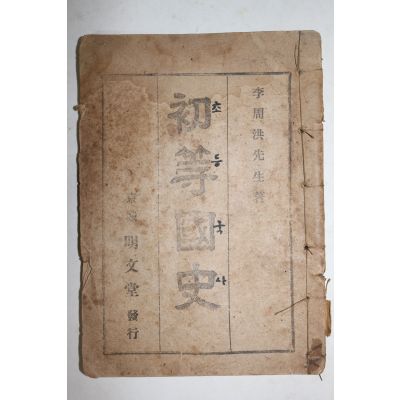 李周洪先生著
初等國史
초등국사
明文堂 發行